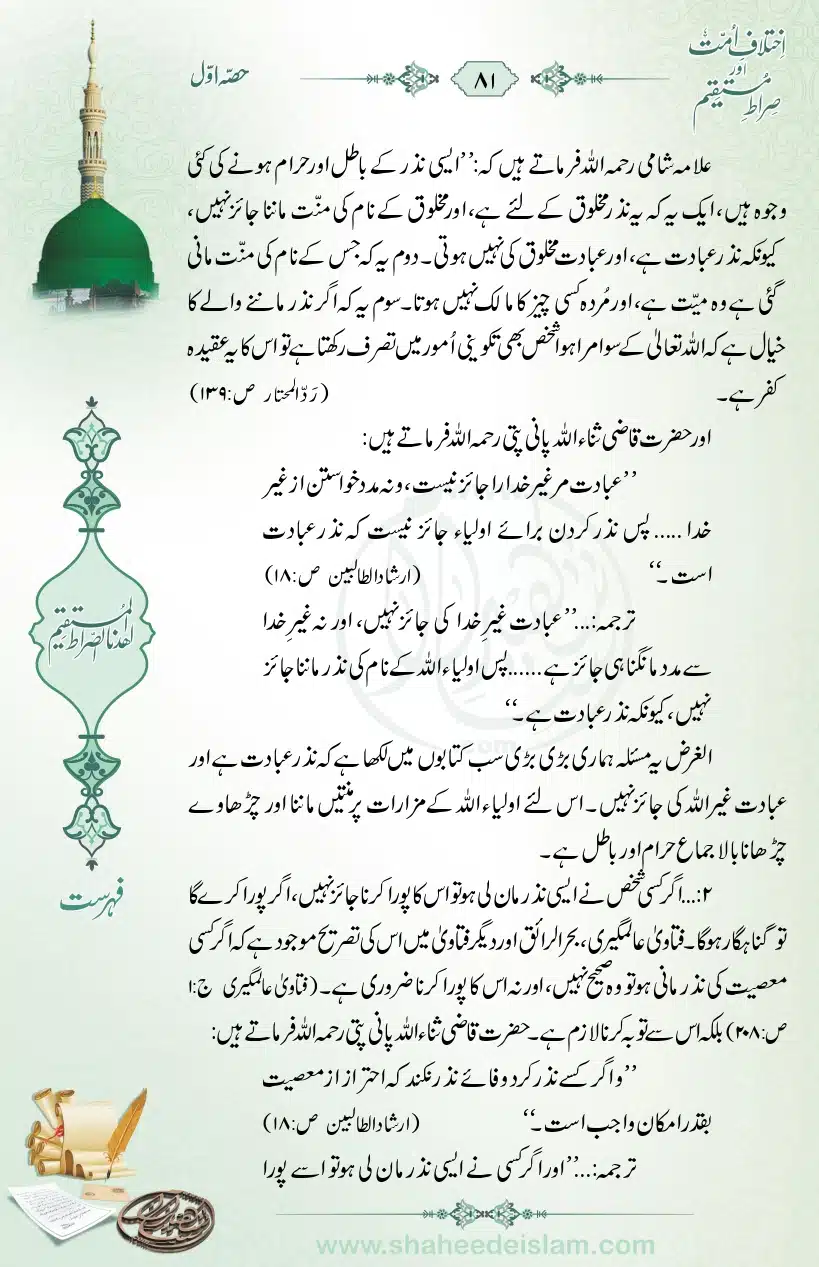 اِختلافِ اُمّت
اور
صِراطِ مُستقیم
۸۱
حصّہ اوّل
علامہ شامی رحمہ اللہ فرماتے ہیں کہ: ’’ایسی نذر کے باطل اور حرام ہونے کی کئی
وجوہ ہیں، ایک یہ کہ یہ نذر مخلوق کے لئے ہے، اور مخلوق کے نام کی منّت ماننا جائز نہیں،
کیونکہ نذر عبادت ہے، اور عبادت مخلوق کی نہیں ہوتی۔ دوم یہ کہ جس کے نام کی منّت مانی
گئی ہے وہ میّت ہے، اور مُردہ کسی چیز کا مالک نہیں ہوتا۔ سوم یہ کہ اگر نذر ماننے والے کا
خیال ہے کہ اللہ تعالیٰ کے سوا مرا ہوا شخص بھی تکوینی اُمور میں تصرف رکھتا ہے تو اس کا یہ عقیدہ
کفر ہے۔ (رَدّ المحتار ص:۱۳۹)
اور حضرت قاضی ثناء اللہ پانی پتی رحمہ اللہ فرماتے ہیں:
’’عبادت مر غیر خدا را جائز نیست، ونہ مدد خواستن از غیر
خدا ..... پس نذر کردن برائے اولیاء جائز نیست کہ نذر عبادت
است۔‘‘ (ارشاد الطالبین ص:۱۸)
ترجمہ:...’’عبادت غیرِ خدا کی جائز نہیں، اور نہ غیرِ خدا
سے مدد مانگنا ہی جائز ہے......پس اولیاء اللہ کے نام کی نذر ماننا جائز
نہیں، کیونکہ نذر عبادت ہے۔‘‘
الغرض یہ مسئلہ ہماری بڑی بڑی سب کتابوں میں لکھا ہے کہ نذر عبادت ہے اور
عبادت غیر اللہ کی جائز نہیں۔ اس لئے اولیاء اللہ کے مزارات پر منتیں ماننا اور چڑھاوے
چڑھانا بالاجماع حرام اور باطل ہے۔
۲:...اگر کسی شخص نے ایسی نذر مان لی ہو تو اس کا پورا کرنا جائز نہیں، اگر پورا کرے گا
تو گناہگار ہوگا۔ فتاویٰ عالمگیری، بحر الرائق اور دیگر فتاویٰ میں اس کی تصریح موجود ہے کہ اگر کسی
معصیت کی نذر مانی ہو تو وہ صحیح نہیں، اور نہ اس کا پورا کرنا ضروری ہے۔ (فتاویٰ عالمگیری ج:۱
ص:۲۰۸) بلکہ اس سے توبہ کرنا لازم ہے۔ حضرت قاضی ثناء اللہ پانی پتی رحمہ اللہ فرماتے ہیں:
’’واگر کسے نذر کرد وفائے نذر نکند کہ احتراز از معصیت
بقدر امکان واجب است۔‘‘ (ارشاد الطالبین ص:۱۸)
ترجمہ:...’’اور اگر کسی نے ایسی نذر مان لی ہو تو اسے پورا
اهدنا الصّراط المستقیم
فہرست
www.shaheedeislam.com